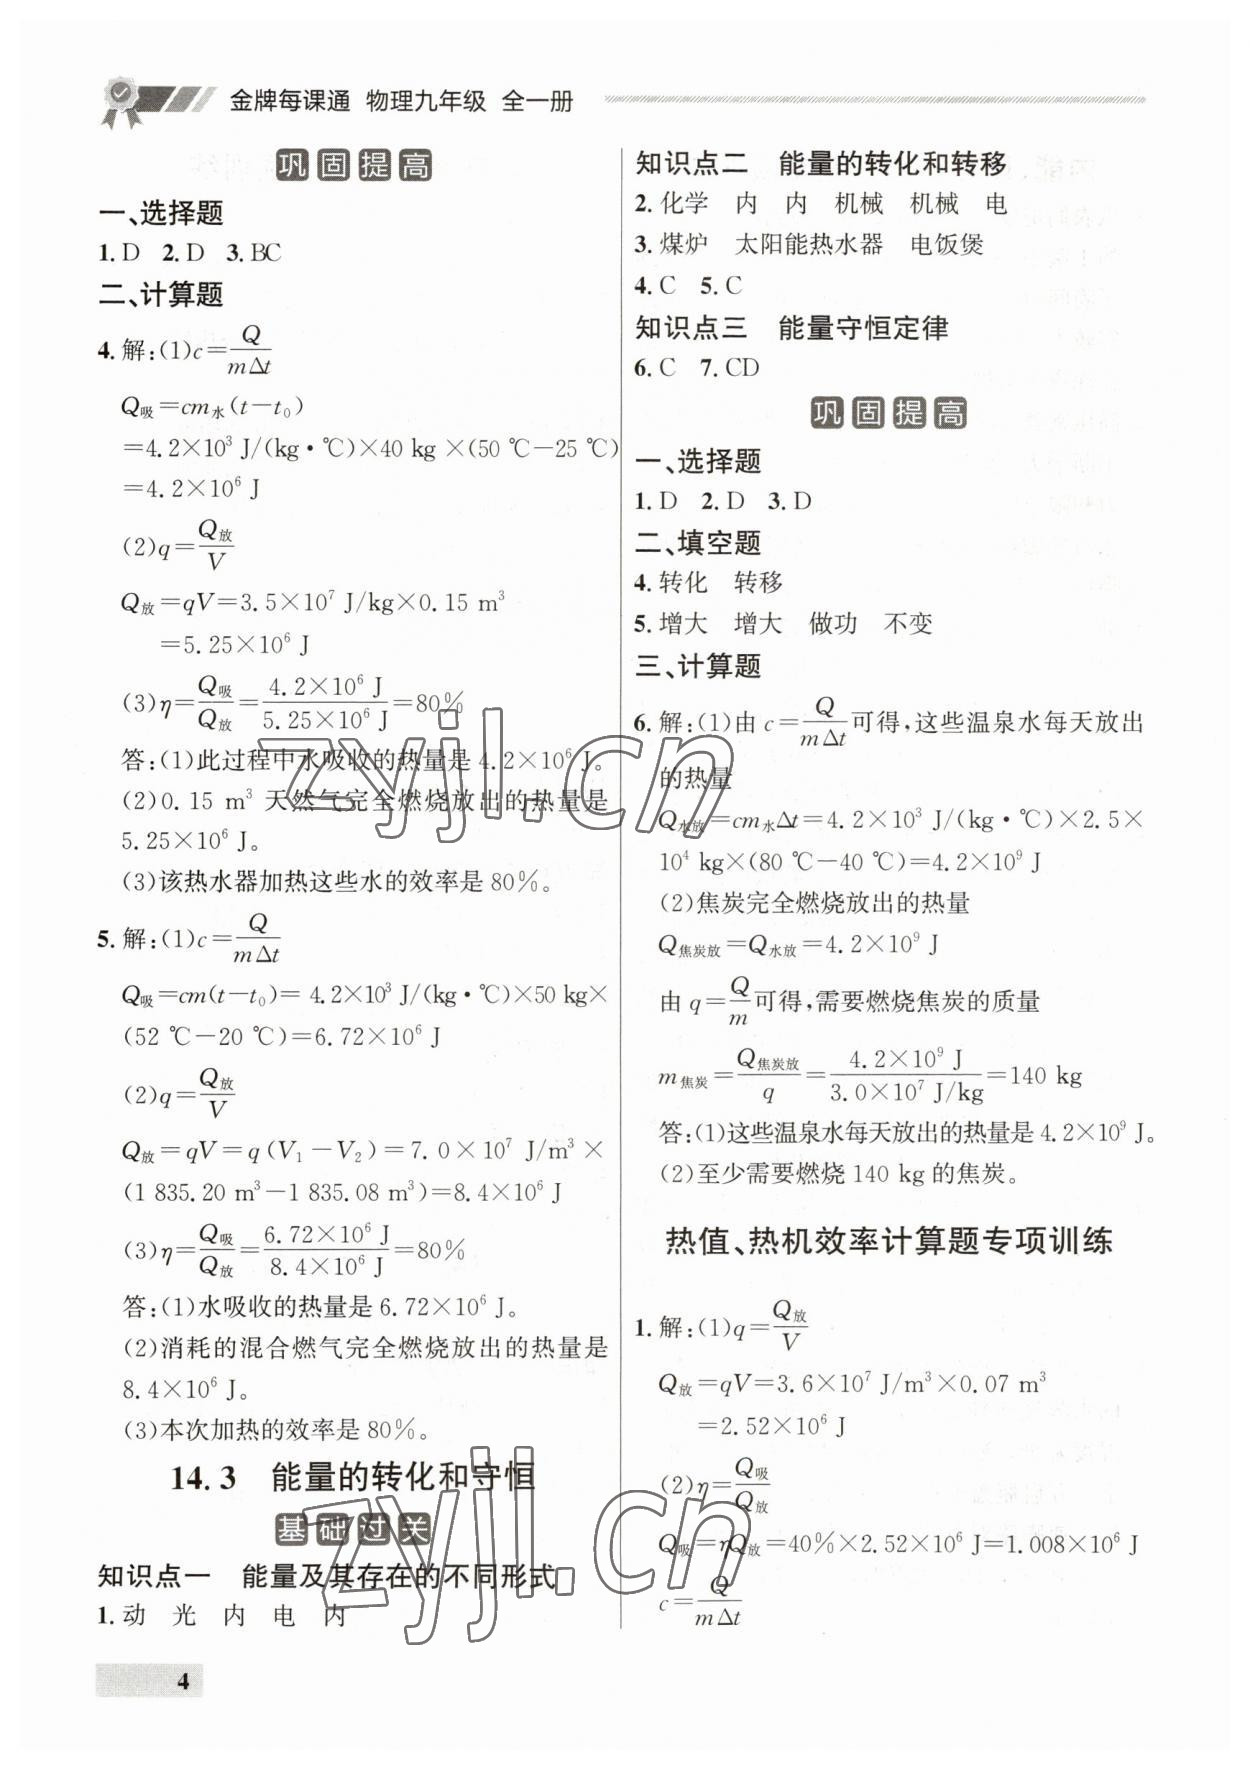 金牌每课通 物理九年级 全一册
巩固提高
一、选择题
1. D 2. D 3. BC
二、计算题
4. 解:(1)c=Q/(mΔt)
Q吸=cm水(t-t₀)
=4.2×10³ J/(kg·℃)×40 kg×(50 ℃-25 ℃)
=4.2×10⁶ J
(2)q=Q放/V
Q放=qV=3.5×10⁷ J/kg×0.15 m³
=5.25×10⁶ J
(3)η=Q吸/Q放=(4.2×10⁶ J)/(5.25×10⁶ J)=80%
答:(1)此过程中水吸收的热量是4.2×10⁶ J。
(2)0.15 m³ 天然气完全燃烧放出的热量是
5.25×10⁶ J。
(3)该热水器加热这些水的效率是80%。
5. 解:(1)c=Q/(mΔt)
Q吸=cm(t-t₀)= 4.2×10³ J/(kg·℃)×50 kg×
(52 ℃-20 ℃)=6.72×10⁶ J
(2)q=Q放/V
Q放=qV=q(V₁-V₂)=7.0×10⁷ J/m³×
(1 835.20 m³-1 835.08 m³)=8.4×10⁶ J
(3)η=Q吸/Q放=(6.72×10⁶ J)/(8.4×10⁶ J)=80%
答:(1)水吸收的热量是6.72×10⁶ J。
(2)消耗的混合燃气完全燃烧放出的热量是
8.4×10⁶ J。
(3)本次加热的效率是80%。
14.3 能量的转化和守恒
基础过关
知识点一 能量及其存在的不同形式
1. 动 光 内 电 内
4
知识点二 能量的转化和转移
2. 化学 内 内 机械 机械 电
3. 煤炉 太阳能热水器 电饭煲
4. C 5. C
知识点三 能量守恒定律
6. C 7. CD
巩固提高
一、选择题
1. D 2. D 3. D
二、填空题
4. 转化 转移
5. 增大 增大 做功 不变
三、计算题
6. 解:(1)由c=Q/(mΔt)可得,这些温泉水每天放出
的热量
Q水放=cm水Δt=4.2×10³ J/(kg·℃)×2.5×
10⁴ kg×(80 ℃-40 ℃)=4.2×10⁹ J
(2)焦炭完全燃烧放出的热量
Q焦炭放=Q水放=4.2×10⁹ J
由q=Q/m可得,需要燃烧焦炭的质量
m焦炭=Q焦炭放/q=(4.2×10⁹ J)/(3.0×10⁷ J/kg)=140 kg
答:(1)这些温泉水每天放出的热量是4.2×10⁹ J。
(2)至少需要燃烧140 kg的焦炭。
热值、热机效率计算题专项训练
1. 解:(1)q=Q放/V
Q放=qV=3.6×10⁷ J/m³×0.07 m³
=2.52×10⁶ J
(2)η=Q吸/Q放
Q吸=ηQ放=40%×2.52×10⁶ J=1.008×10⁶ J
c=Q/(mΔt)
zyjl.cn
zyjl.cn